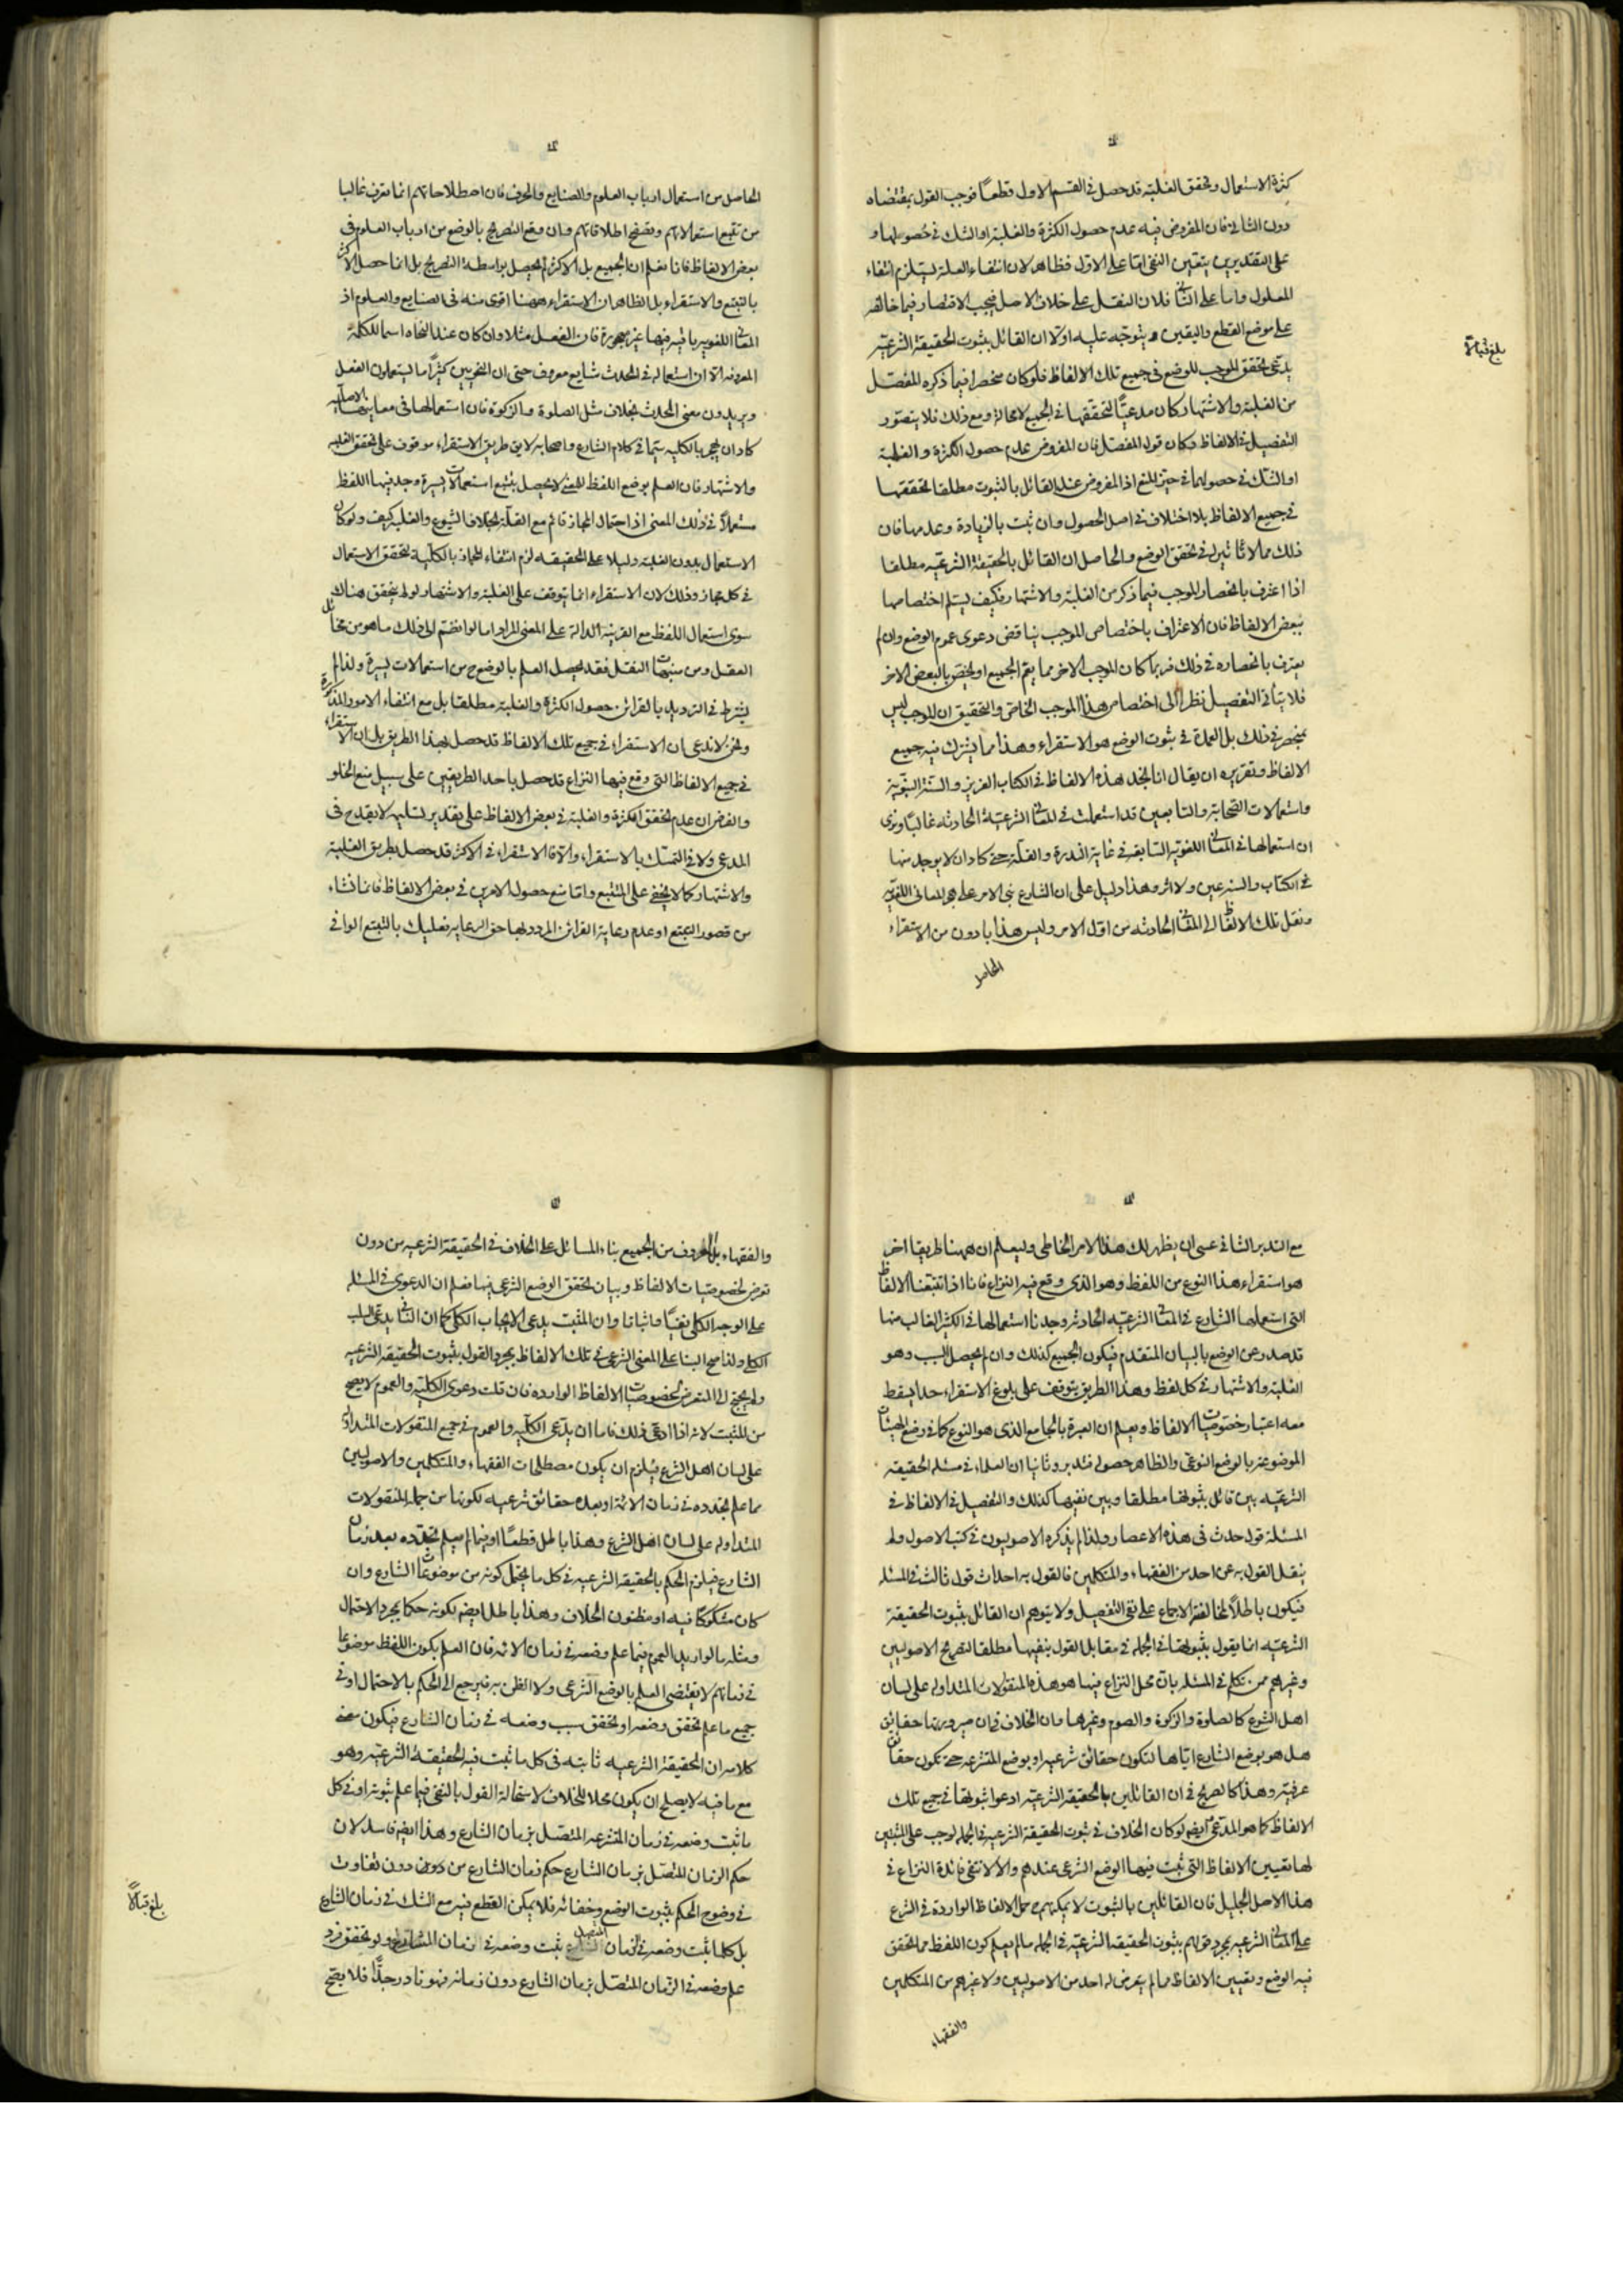 كثرة الاستعمال وتحقق الغلبة قد حصل في القسم الاول قطعًا فوجب القول بمقتضاه
دون الثاني فان المفروض فيه عدم حصول الكثرة والغلبة او الشك في حصولهما و
على التقديرين يتعين النفي اما على الاول فظاهر لان انتفاء العلة يستلزم انتفاء
المعلول واما على الثاني فلان النقل على خلاف الاصل فيجب الاقتصار فيما خالفه
على موضع القطع واليقين ويتوجه عليه اولا ان القائل بثبوت الحقيقة الشرعية
يدعي تحقق الموجب للوضع في جميع تلك الالفاظ فلو كان منحصرا فيما ذكره المفصل
من الغلبة والاشتهار كان مدعيًا لتحققهما في الجميع لا محالة ومع ذلك فلا يتصور
التفصيل في الالفاظ وكان قول المفصل فان المفروض عدم حصول الكثرة والغلبة
او الشك في حصولهما في حيز المنع اذ المفروض عند القائل بالثبوت مطلقا تحققهما
في جميع الالفاظ بلا اختلاف في اصل الحصول وان ثبت بالزيادة وعدمها فان
ذلك مما لا تاثير له في تحقق الوضع والحاصل ان القائل بالحقيقة الشرعية مطلقا
اذا اعترف بانحصار الموجب فيما ذكر من الغلبة والاشتهار فكيف يسلم اختصاصها
ببعض الالفاظ فان الاعتراف باختصاص الموجب يناقض دعوى عموم الوضع وان لم
يعترف بانحصاره في ذلك فربما كان الموجب الاخر مما يعم الجميع او يختص بالبعض الاخر
فلا يتاتى التفصيل نظرا الى اختصاص هذا الموجب الخاص والتحقيق ان الموجب ليس
بمنحصر في ذلك بل العمدة في ثبوت الوضع هو الاستقراء وهذا مما يشترك فيه جميع
الالفاظ وتقريره ان يقال انا نجد هذه الالفاظ في الكتاب العزيز والسنة النبوية
واستعمالات الصحابة والتابعين قد استعملت في المعاني الشرعية الحادثة غالبًا ونرى
ان استعمالها في المعاني اللغوية السابقة في غاية الندرة والقلة حتى كاد ان لا يوجد منها
في الكتاب والسنة عين ولا اثر وهذا دليل على ان الشارع بنى الامر على هجر المعاني اللغوية
ونقل تلك الالفاظ الى المعاني الحادثة من اول الامر وليس هذا بادون من الاستقراء
الحاصل
بلغ قبالا
الحاصل من استعمال ارباب العلوم والصنايع والحرف فان اصطلاحاتهم انما تعرف غالبا
من تتبع استعمالاتهم وتصفح اطلاقاتهم وان وقع التصريح بالوضع من ارباب العلوم في
بعض الالفاظ فانا نعلم ان الجميع بل الاكثر لم يحصل بواسطة التصريح بل انما حصل الاكثر
بالتتبع والاستقراء بل الظاهر ان الاستقراء ههنا اقوى منه في الصنايع والعلوم اذ
المعاني اللغوية باقية فيها غير مهجورة فان الفعل مثلا وان كان عند النحاة اسما للكلمة
المعروفة الا ان استعماله في الحدث شايع معروف حتى ان النحويين كثيرًا ما يستعملون الفعل
ويريدون معنى الحدث بخلاف مثل الصلوة والزكوة فان استعمالها في معانيها الاصلية
كاد ان يهجر بالكلية سيما في كلام الشارع واصحابه لا يق طريق الاستقراء موقوف على تحقق الغلبة
والاشتهار فان العلم بوضع اللفظ للمعنى لا يحصل بتتبع استعمالات يسيرة وجد فيها اللفظ
مستعملاً في ذلك المعنى اذ احتمال المجاز قائم مع القلة بخلاف الشيوع والغلبة كيف ولو كان
الاستعمال بدون الغلبة دليلا على الحقيقة لزم انتفاء المجاز بالكلية لتحقق الاستعمال
في كل مجاز وذلك لان الاستقراء انما يتوقف على الغلبة والاشتهار لو لم يتحقق هناك
سوى استعمال اللفظ مع القرينة الدالة على المعنى المراد اما لو انضم الى ذلك ما هو من مخائل
العقل ومن منبهات النقل فقد يحصل العلم بالوضع ح من استعمالات يسيرة ولذا لم
يشترط في الترديد بالقرائن حصول الكثرة والغلبة مطلقا بل مع انتفاء الامور المذكورة
ونحن لا ندعي ان الاستقراء في جميع تلك الالفاظ قد حصل بهذا الطريق بل ان الاستقراء
في جميع الالفاظ التي وقع فيها النزاع قد حصل باحد الطريقين على سبيل منع الخلو
والغرض ان عدم تحقق الكثرة والغلبة في بعض الالفاظ على تقدير تسليمه لا يقدح في
المدعى ولا في التمسك بالاستقراء والا فالاستقراء في الاكثر قد حصل بطريق الغلبة
والاشتهار كما لا يخفى على المتتبع واما منع حصول الامرين في بعض الالفاظ فانما نشاء
من قصور التتبع او عدم رعاية القرائن المردد بها حق الرعاية فعليك بالتتبع الوافي
مع التدبر الشافي عسى ان يظهر لك هذا الامر الخاطي وليعلم ان ههنا طريقا اخر
هو استقراء هذا النوع من اللفظ وهو الذي وقع فيه النزاع فانا اذا تتبعنا الالفاظ
التي استعملها الشارع في المعاني الشرعية الحادثة وجدنا استعمالها في الكثير الغالب منها
قد صدر عن الوضع بالبيان المتقدم فيكون الجميع كذلك وان لم يحصل السبب وهو
الغلبة والاشتهار في كل لفظ وهذا الطريق يتوقف على بلوغ الاستقراء حدا يسقط
معه اعتبار خصوصيات الالفاظ ويعلم ان العبرة بالجامع الذي هو النوع كما في وضع الهيئات
الموضوعة بالوضع النوعي والظاهر حصوله فتدبر وثانيا ان العلماء في مسئلة الحقيقة
الشرعية بين قائل بثبوتها مطلقا وبين نفيها كذلك والتفصيل في الالفاظ في
المسئلة قول حدث في هذه الاعصار ولذا لم يذكره الاصوليون في كتب الاصول ولم
ينقل القول به عن احد من الفقهاء والمتكلمين فالقول به احداث قول ثالث في المسئلة
فيكون باطلاً لمخالفة الاجماع على نفي التفصيل ولا يتوهم ان القائل بثبوت الحقيقة
الشرعية انما يقول بثبوتها في الجملة في مقابل القول بنفيها مطلقا لتصريح الاصوليين
وغيرهم ممن تكلم في المسئلة بان محل النزاع فيها هو هذه المنقولات المتداولة على لسان
اهل الشرع كالصلوة والزكوة والصوم وغيرها وان الخلاف في ان صيرورتها حقائق
هل هو بوضع الشارع اياها لتكون حقائق شرعية او بوضع المتشرعة حتى تكون حقائق
عرفية وهذا كالصريح في ان القائلين بالحقيقة الشرعية ادعوا ثبوتها في جميع تلك
الالفاظ كما هو المدعى ايضا لو كان الخلاف في ثبوت الحقيقة الشرعية في الجملة لوجب على المثبتين
لها تعيين الالفاظ التي ثبت فيها الوضع الشرعي عندهم والا لانتفى فائدة النزاع في
هذا الاصل الجليل فان القائلين بالثبوت لا يمكنهم ح حمل الالفاظ الواردة في الشرع
على المعاني الشرعية بمجرد قولهم بثبوت الحقيقة الشرعية في الجملة ما لم يعلم كون اللفظ مما تحقق
فيه الوضع وتعيين الالفاظ مما لم يتعرض له احد من الاصوليين ولا غيرهم من المتكلمين
والفقهاء
والفقهاء بل المعروف من الجميع بناء المسائل على الخلاف في الحقيقة الشرعية من دون
تعرض لخصوصيات الالفاظ وبيان تحقق الوضع الشرعي فيها فعلم ان الدعوى في المسئلة
على الوجه الكلي نفيًا واثباتا وان المثبت يدعي الايجاب الكلي كما ان النافي يدعي السلب
الكلي ولذا صح البناء على المعنى الشرعي في تلك الالفاظ بمجرد القول بثبوت الحقيقة الشرعية
ولم يحتج الى التعرض لخصوصيات الالفاظ الواردة فان قلت دعوى الكلية والعموم لا يصح
من المثبت لانه اذا ادعى ذلك فاما ان يدعي الكلية والعموم في جميع المنقولات المتداولة
على لسان اهل الشرع فيلزم ان يكون مصطلحات الفقهاء والمتكلمين والاصوليين
مما علم تجدده في زمان الائمة او بعده حقائق شرعية لكونها من جملة المنقولات
المتداولة على لسان اهل الشرع وهذا باطل قطعًا او فيما لم يعلم تجدده بعد زمان
الشارع فيلزم الحكم بالحقيقة الشرعية في كل ما يحتمل كونه من موضوعات الشارع وان
كان مشكوكًا فيه او مظنون الخلاف وهذا باطل ايضا لكونه حكما بمجرد الاحتمال
ومثله ما لو اريد العموم فيما علم وضعه في زمان الائمة فان العلم بكون اللفظ موضوعا
في زمانهم لا يقتضي العلم بالوضع الشرعي ولا الظن به فيرجع الى الحكم بالاحتمال او في
جميع ما علم تحقق وضعه او تحقق سبب وضعه في زمان الشارع فيكون معنى
كلامه ان الحقيقة الشرعية ثابتة في كل ما ثبت فيه الحقيقة الشرعية وهو
مع ما فيه لا يصلح ان يكون محلا للخلاف لاستحالة القول بالنفي فيما علم ثبوته او في كل
ما ثبت وضعه في زمان المتشرعة المتصل بزمان الشارع وهذا ايضا فاسد لان
حكم الزمان المتصل بزمان الشارع حكم زمان الشارع من دون تفاوت
في وضوح الحكم بثبوت الوضع وخفائه فلا يمكن القطع فيه مع الشك في زمان الشارع
بل كلما ثبت وضعه في الزمان المتصل ثبت وضعه في زمان الشارع ولو تحقق فرد
علم وضعه في الزمان المتصل بزمان الشارع دون زمانه فهو نادر جدًا فلا يصح
بلغ قبالًا